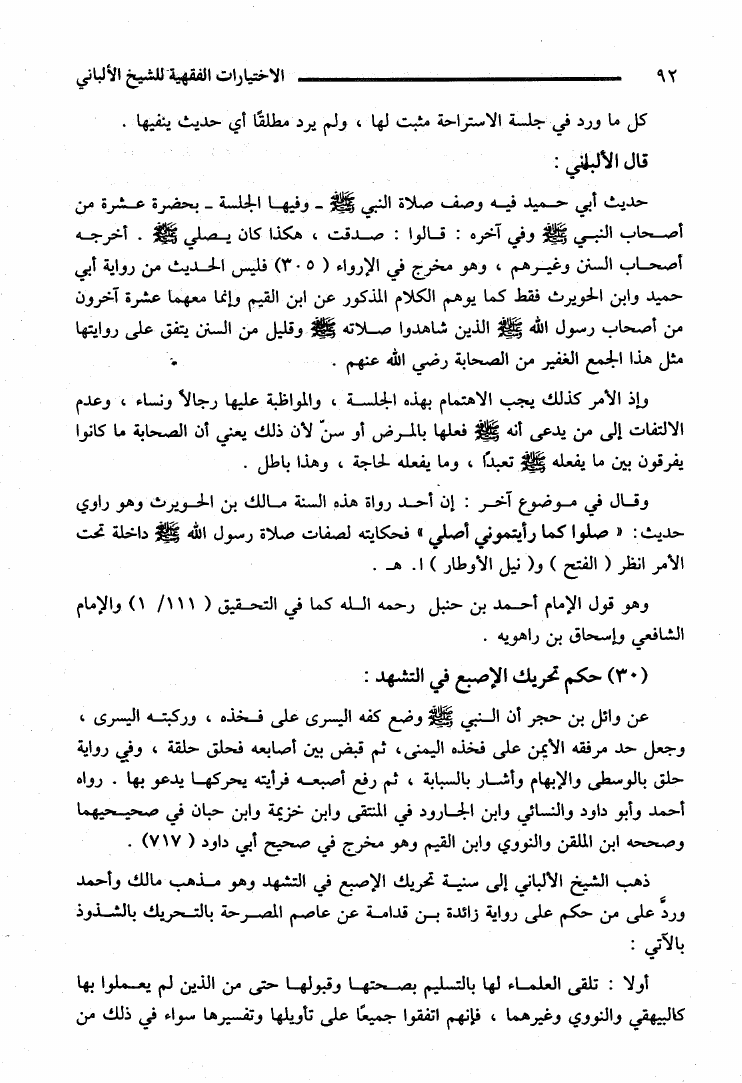 ٩٢ الاختيارات الفقهية للشيخ الألباني
كل ما ورد في جلسة الاستراحة مثبت لها ، ولم يرد مطلقًا أي حديث ينفيها .
قال الألباني :
حديث أبي حميد فيه وصف صلاة النبي ﷺ ـ وفيها الجلسة ـ بحضرة عشرة من
أصحاب النبي ﷺ وفي آخره : قالوا : صدقت ، هكذا كان يصلي ﷺ . أخرجه
أصحاب السنن وغيرهم ، وهو مخرج في الإرواء ( ٣٠٥) فليس الحديث من رواية أبي
حميد وابن الحويرث فقط كما يوهم الكلام المذكور عن ابن القيم وإنما معهما عشرة آخرون
من أصحاب رسول الله ﷺ الذين شاهدوا صلاته ﷺ وقليل من السنن يتفق على روايتها
مثل هذا الجمع الغفير من الصحابة رضي الله عنهم .
وإذ الأمر كذلك يجب الاهتمام بهذه الجلسة ، والمواظبة عليها رجالاً ونساء ، وعدم
الالتفات إلى من يدعى أنه ﷺ فعلها بالمرض أو سنّ لأن ذلك يعني أن الصحابة ما كانوا
يفرقون بين ما يفعله ﷺ تعبدًا ، وما يفعله لحاجة ، وهذا باطل .
وقال في موضوع آخر : إن أحد رواة هذه السنة مالك بن الحويرث وهو راوي
حديث: « صلوا كما رأيتموني أصلي » فحكايته لصفات صلاة رسول الله ﷺ داخلة تحت
الأمر انظر ( الفتح ) و( نيل الأوطار ) ا. هـ .
وهو قول الإمام أحمد بن حنبل رحمه الله كما في التحقيق ( ١١١/ ١) والإمام
الشافعي وإسحاق بن راهويه .
(٣٠) حكم تحريك الإصبع في التشهد :
عن وائل بن حجر أن النبي ﷺ وضع كفه اليسرى على فخذه ، وركبته اليسرى ،
وجعل حد مرفقه الأيمن على فخذه اليمنى، ثم قبض بين أصابعه فحلق حلقة ، وفي رواية
حلق بالوسطى والإبهام وأشار بالسبابة ، ثم رفع أصبعه فرأيته يحركها يدعو بها . رواه
أحمد وأبو داود والنسائي وابن الجارود في المنتقى وابن خزيمة وابن حبان في صحيحيهما
وصححه ابن الملقن والنووي وابن القيم وهو مخرج في صحيح أبي داود ( ٧١٧) .
ذهب الشيخ الألباني إلى سنية تحريك الإصبع في التشهد وهو مذهب مالك وأحمد
وردَّ على من حكم على رواية زائدة بن قدامة عن عاصم المصرحة بالتحريك بالشذوذ
بالآتي :
أولا : تلقى العلماء لها بالتسليم بصحتها وقبولها حتى من الذين لم يعملوا بها
كالبيهقي والنووي وغيرهما ، فإنهم اتفقوا جميعًا على تأويلها وتفسيرها سواء في ذلك من